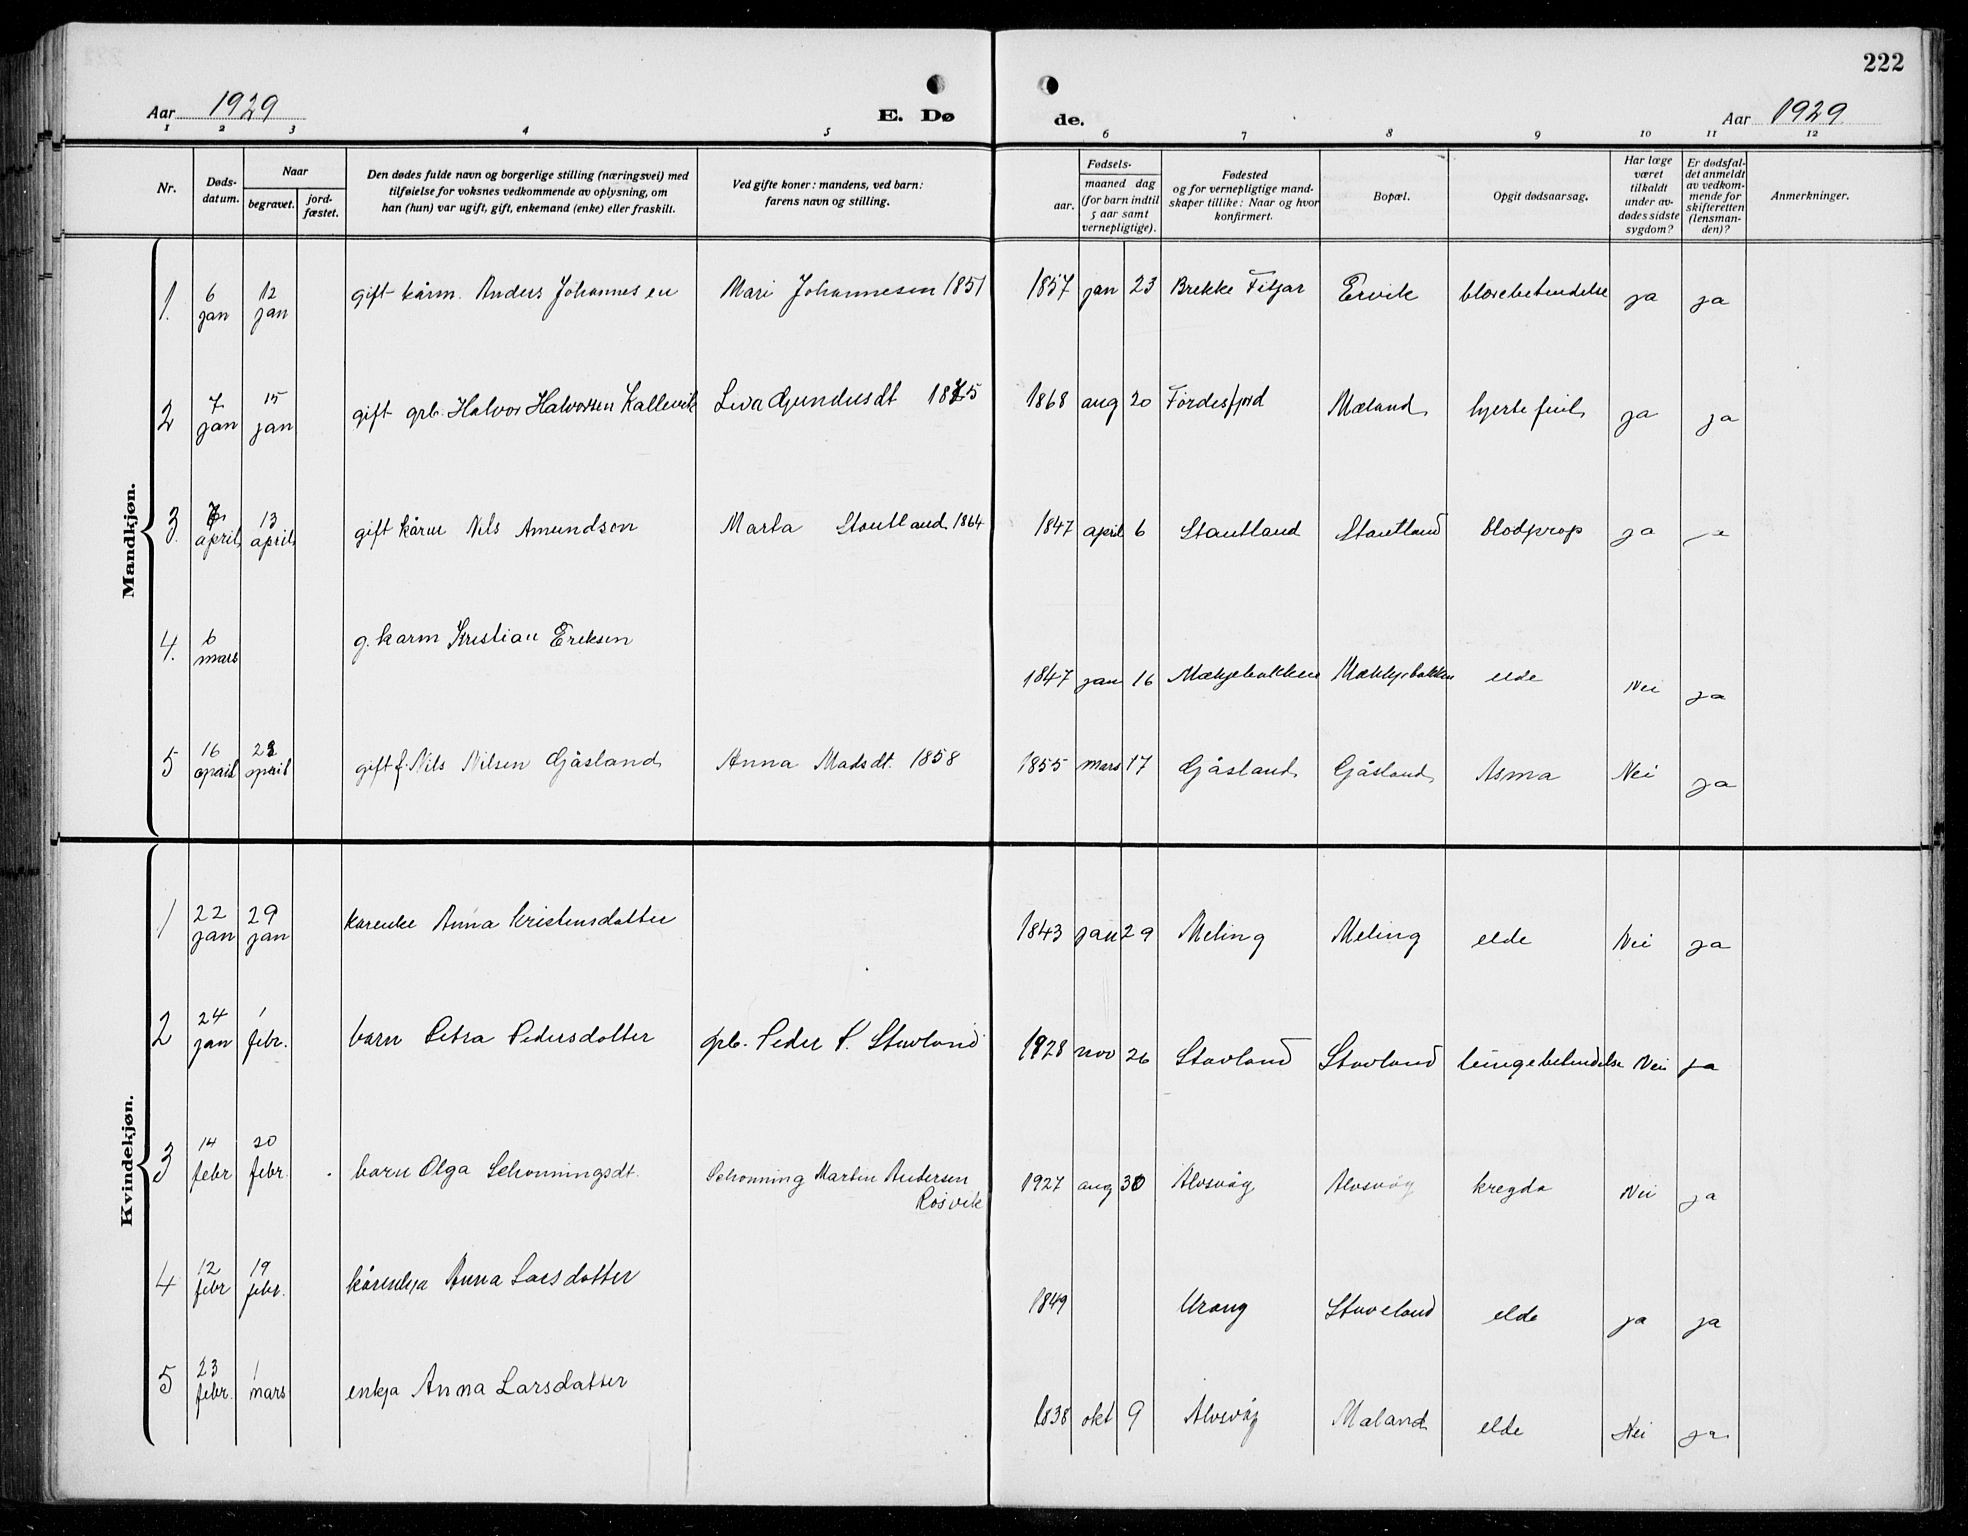 222
Aar 1929
E. Dø
de.
Aar 1929
1 2 3 4 5 6 7 8 9 10 11 12
Nr.
Døds-
datum.
Naar
begravet.
jord-
fæstet.
Den dødes fulde navn og borgerlige stilling (næringsvei) med
tilføielse for voksnes vedkommende av oplysning, om
han (hun) var ugift, gift, enkemand (enke) eller fraskilt.
Ved gifte koner: mandens, ved barn:
farens navn og stilling.
Fødsels-
aar.
maaned dag
(for barn indtil
5 aar samt
vernepligtige).
Fødested
og for vernepligtige mand-
skaper tillike: Naar og hvor
konfirmert.
Bopæl.
Opgit dødsaarsag.
Har læge
været
tilkaldt
under av-
dødes sidste
sygdom?
Er dødsfal-
det anmeldt
av vedkom-
mende for
skifteretten
(lensman-
den)?
Anmerkninger.
Mandkjøn.
1. 6 jan 12 jan gift kårm. Anders Johannesen Mari Johannesen 1851 1857 jan 23 Brekke Fitjar Ervik blærebetendelse ja ja
2 7 jan 15 jan gift grb. Halvor Halvorsen Kallevik Liva Gundersdt 1875 1868 aug 20 Førdesfjord Mæland hjertefeil ja ja
3. april 13 april gift kårm Nils Amundsen Marta Stautland 1864 1847 april 6 Stautland Stautland blodprop ja ja
4. 6 mars g. karm Kristian Eriksen 1847 jan 16 Mækjebakken Mækkjebakken elde Nei ja
5 16 april 23 april gift f. Nils Nilsen Gåsland Anna Madsdt. 1858 1855 mars 17 Gåsland Gåsland Asma Nei ja
Kvindekjøn.
1 22 jan 29 jan karenke Anna Kristensdatter 1843 jan 29 Meling Meling elde Nei ja
2 24 jan 1 febr. barn Petra Pedersdatter grb. Peder P. Stavland 1928 nov 26 Stavland Stavland lungebetendelse Nei ja
3 14 febr 20 febr. barn Olga Schonningsdt. Schonning Martin Andersen
Rosvik 1927 aug 30 Alvsvåg Alvsvåg kregda Nei ja
4 12 febr 19 febr. kårenkja Anna Larsdatter 1849 Urang Staveland elde ja ja
5 23 febr. 1 mars enkja Anna Larsdatter 1838 okt 9 Alvsvåg Maland elde Nei ja